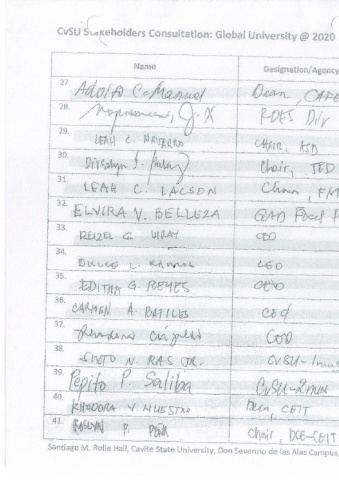 CvSU Stakeholders Consultation: Global University @ 2020
Name Designation/Agency
27. Adolfo C. Manuel Dean, CAFE
28. J. X RDES Div
29. LEAH C. NAVARRO CHAIR,
30. Chair, TED
31. LEAH C. LACSEN Chair, FM
32. ELVIRA V. BELLEZA GAD Focal P
33. REIZEL G. VIRAY CEO
34. DULCE L. RAMOS CEO
35. EDITHA G. REYES
36. CARMEN A. BATILES CEO
37.
38. SIXTO N. RAS JR. CvSU-
39. Pepito P. Saliba CvSU-
40. RHODORA V. NUESTRO Dean, CEIT
41. ROSLYN P. PEÑA Chair, DCE-CEIT
Santiago M. Rolle Hall, Cavite State University, Don Severino de las Alas Campus,